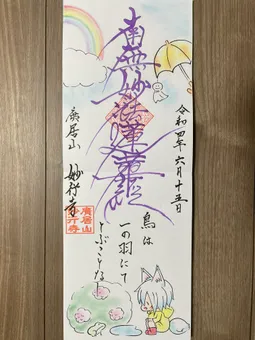 令和四年六月十五日
南無妙法蓮華経
鳥は
一の羽にて
とぶことなし
廣居山
妙行寺
廣居山
妙行寺